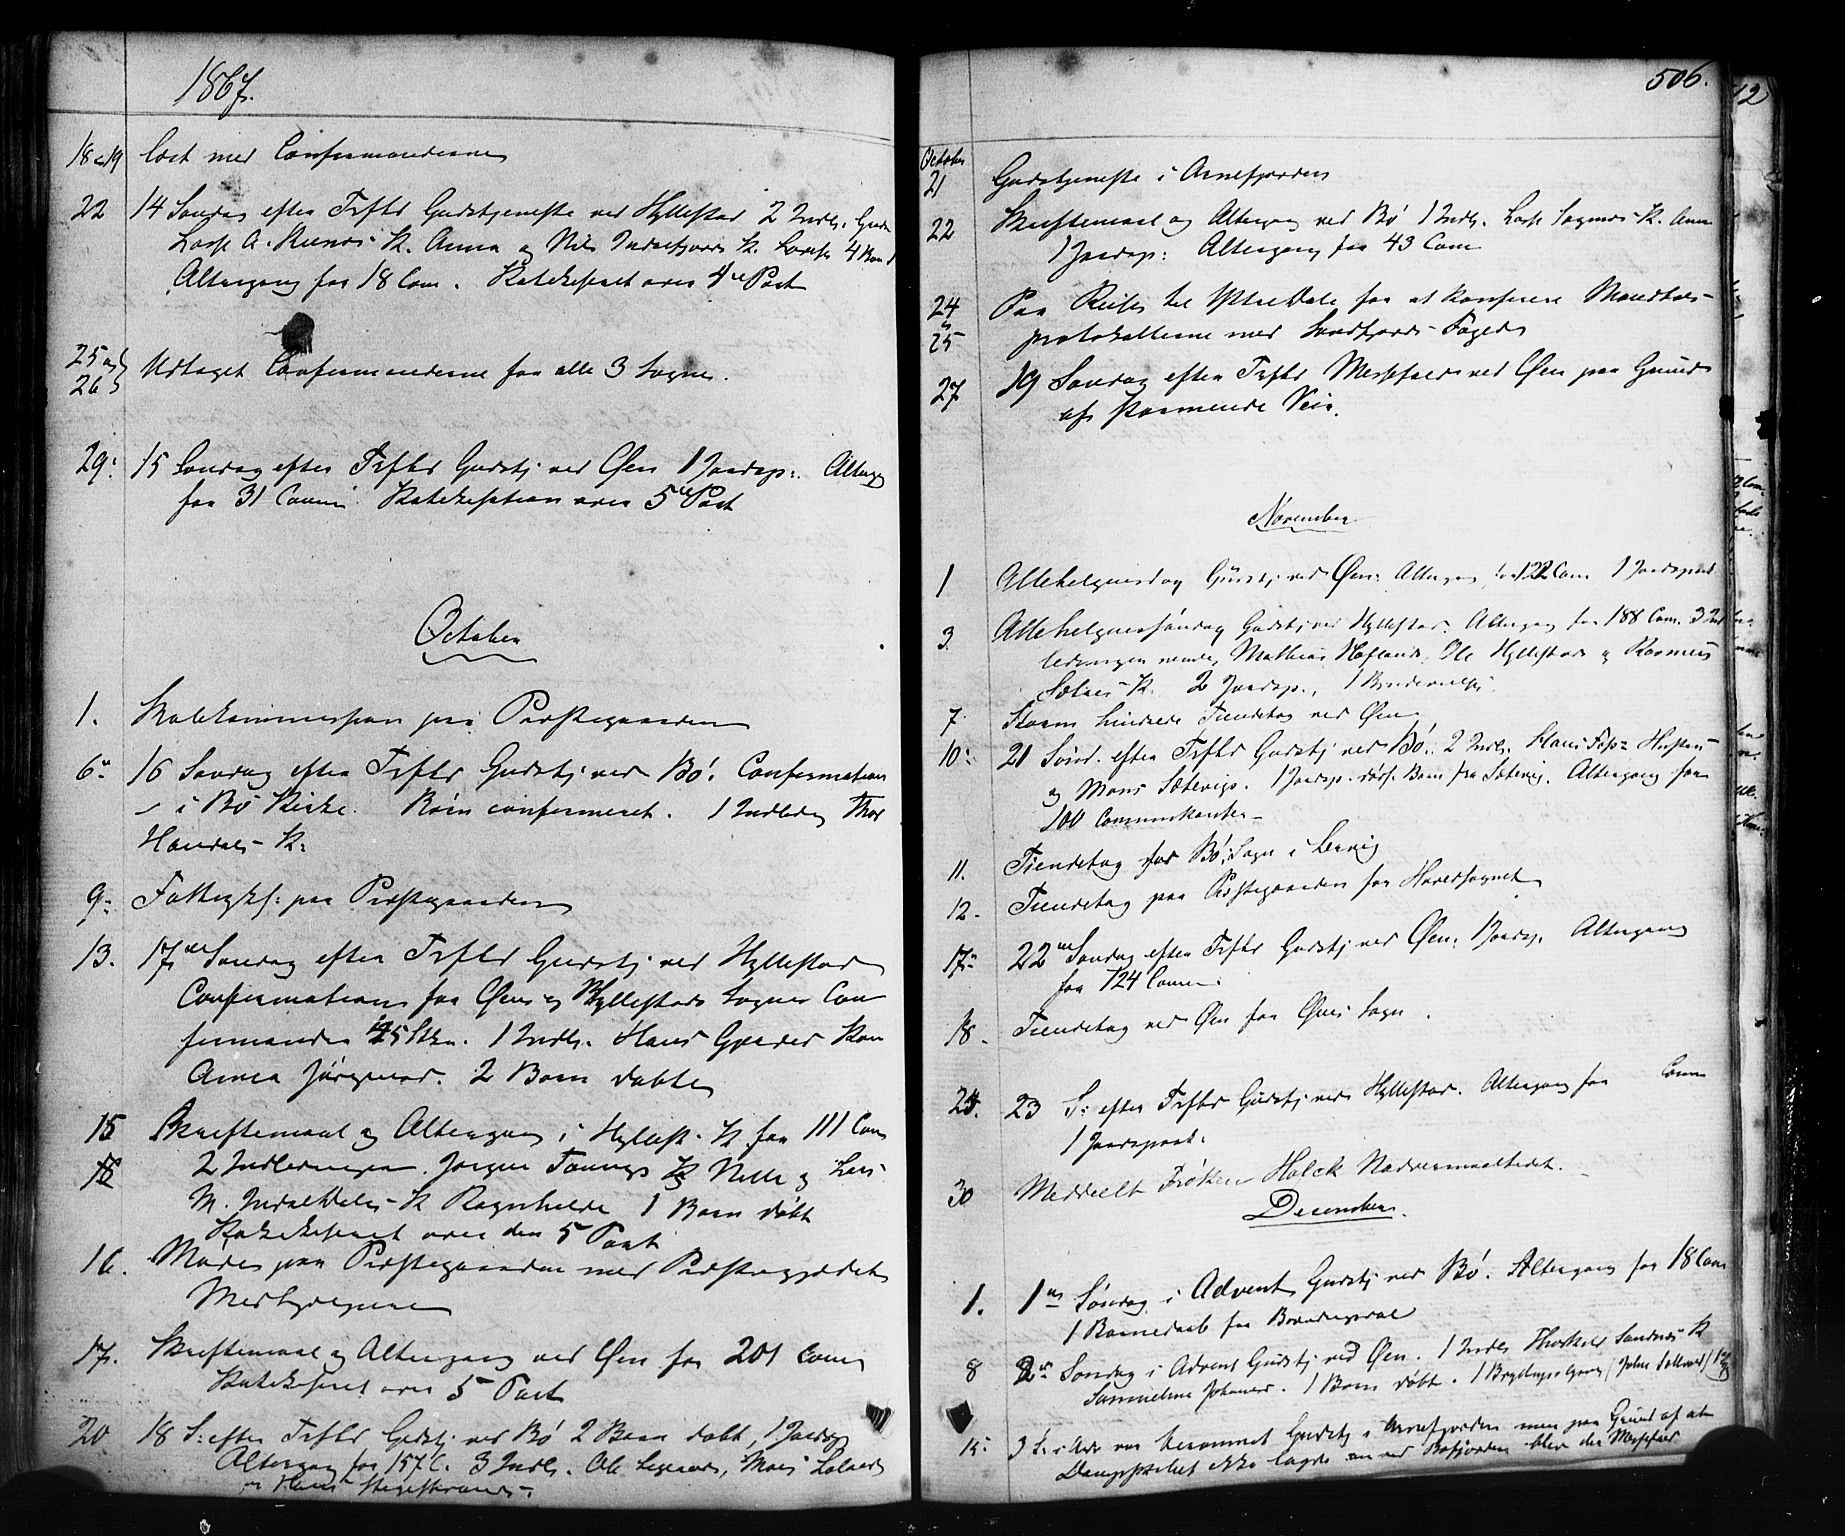 1867.
18 & 19 læst med Confirmanderne
22 14 Søndag efter Trfld Gudstjeneste ved Hyllestad 2 Indl.
K. Anna og Nils Indrefjords K. 4 Børn
Altergang for 18 Com. Katekiseret over 4de Part
25 og 26 Udtaget Confirmanderne for alle 3 Sogne.
29. 15 Søndag efter Trfld Gudstj ved Øen 1 Jordsp: Alterg
for 31 Comm. Katekisation over 5te Part
October
1. Skolekommission paa Præstegaarden
6. 16 Søndag efter Trfld Gudstj ved Bø. Confirmation
i Bø Kirke. Børn confirmeret. 1 Indledn Thor
K.
9. Fattigk: paa Præstegaarden
13. 17de Søndag efter Trfld Gudstj ved Hyllestad
Confirmation for Øens og Hyllestads Sogner Con
firmander 45 Stkr. 1 Indl. Hans Kone
Anna 2 Børn døbte
15 Skriftemaal og Altergang i Hyllest. K. for 111 Com
18 2 Indledninger. Jørgen K Nille og Lars
M. Indredales K Ragnhilde 1 Barn døbt
Katekiseret over den 5 Part
16. Møde paa Præstegaarden med Præstegjeldets
Medhjelpere
17. Skriftemaal og Altergang ved Øen for 201 Com
Katekiseret over 5 Part
20 18 S: efter Trfld Gudstj ved Bø 2 Børn døbt, 1 Jordsp
Altergang for 157 C. 3 Indl. Ole
og Hans
506.
October
21 Gudstjeneste i Arnefjorden
22 Skriftemaal og Altergang ved Bø 1 Indl. Lasse K. Anna
1 Jordsp: Altergang for 43 Com
24 & 25 Paa Reise til Ytredale for at konferere Mandtals-
protokollerne med Søndfjords Foged
27 19 Søndag efter Trfld Messefald ved Øen paa Grund
af stormende Veir.
November
1 Allehelgensdag Gudstj ved Øen. Altergang for 122 Com 1 Jordspaak
3. Allehelgenssøndag Gudstj ved Hyllestad. Altergang for 188 Com. 3 Ind
ledninger Mathias Hoflands, Ole Hyllestads og Rasmus
K. 2 Jordsp., 1 Brudevielse.
7. Storm hindrede Tiendetag ved Øen
10. 21 Sønd. efter Trfld Gudstj ved Bø. 2 Indl. Hans
og Mons Sætevigs. 1 Jordsp. Barn fra Sætevig. Altergang for
100 Communikanter
11. Tiendetag for Bø Sogn i Lervig
12. Tiendetag paa Præstegaarden for Hovedsognet
17. 22de Søndag efter Trfld Gudstj ved Øen. 1 Jordsp. Altergang
for 124 Comm.
18. Tiendetag ved Øen for Øens Sogn.
24. 23 S: efter Trfld Gudstj ved Hyllestad. Altergang for Comm
1 Jordspaak.
30 Meddeelt Frøken Holck Nadvermaaltidet.
December.
1. 1ste Søndag i Advent Gudstj ved Bø. Altergang for 18 Com
1 Barnedaab fra
8 2den Søndag i Advent Gudstj ved Øen. 1 Indl. K
1 Barn døbt.
15. 3 S: i Adv var berammet Gudstj i Arnefjorden men paa Grund af at
Dampskibet ikke lagde ind ved Bøfjorden blev der Messefald